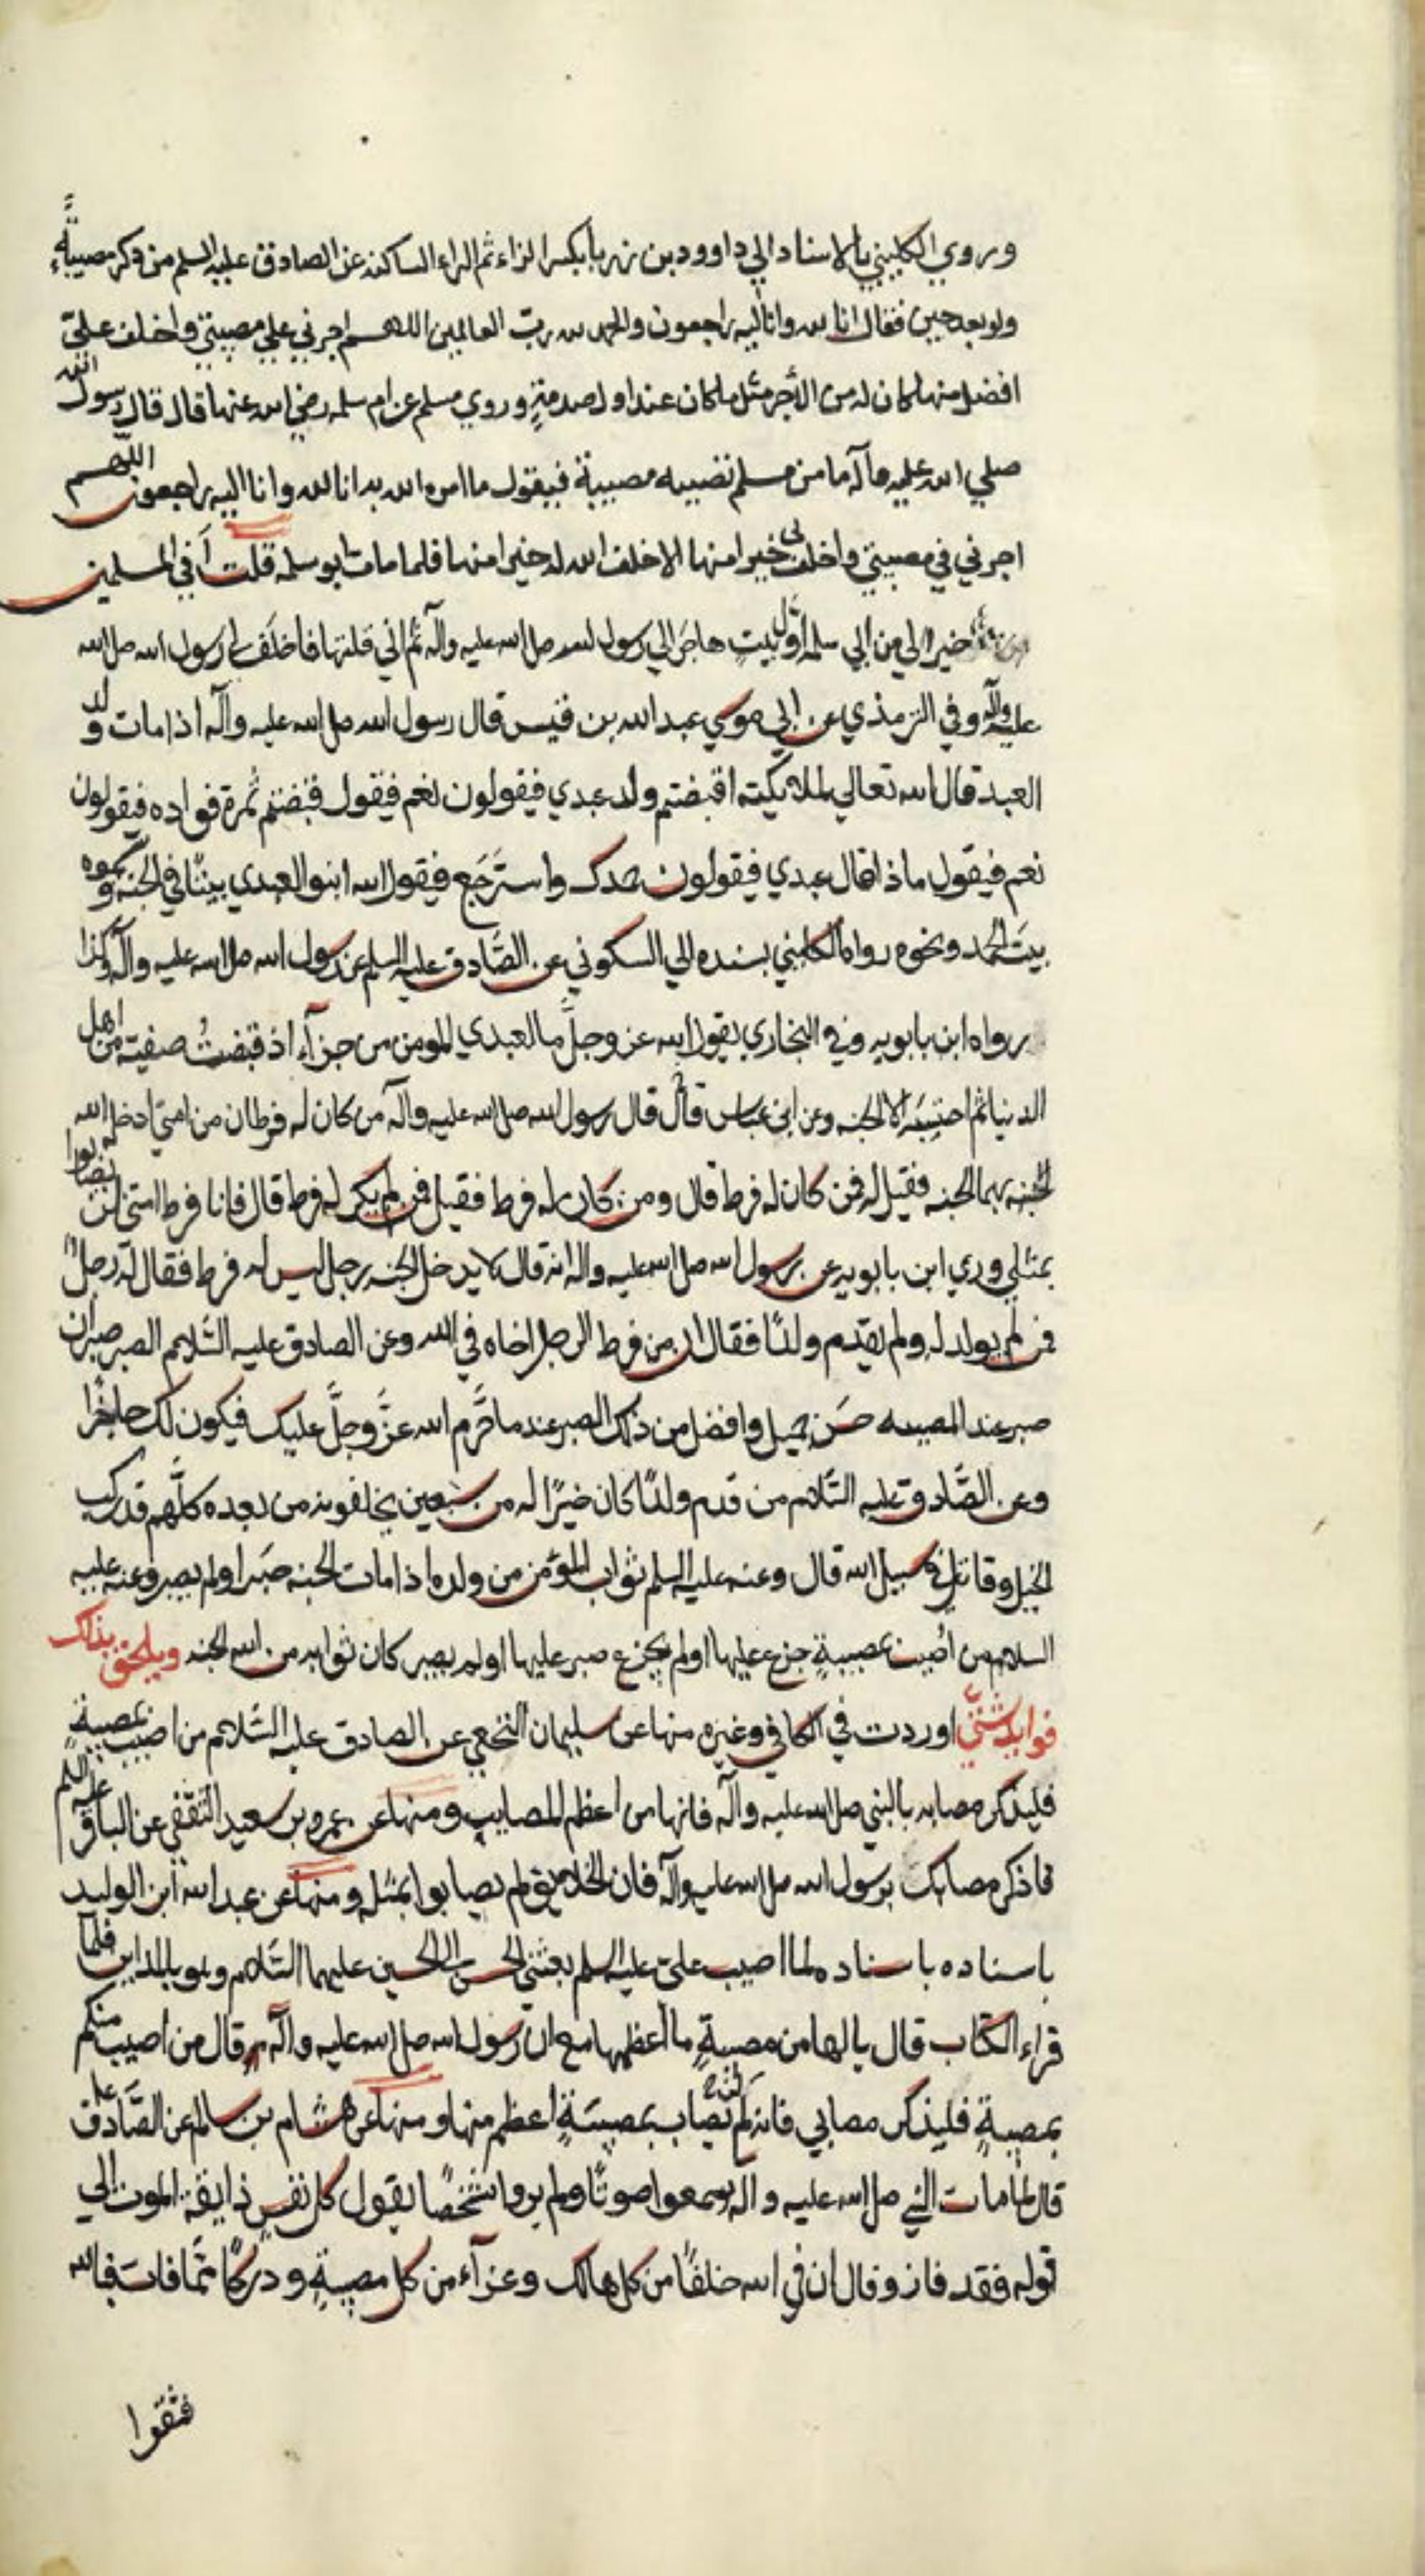 وروي الكليني بالاسناد الي داوود بن زربا بكسر الزاء ثم الراء الساكنه عن الصادق عليه السلم من ذكر مصيبةً
ولو بعد حين فقال انا لله وانا اليه راجعون والحمد لله ربّ العالمين اللهم اجرني علي مصيبتي واخلف عليّ
افضل منها كان له من الأجر مثل ما كان عند اول صدمةٍ وروي مسلم عن ام سلمه رضي الله عنها قال قال رسول الله
صلي الله عليه وآله ما من مسلم تصيبه مصيبة فيقول ما امره الله به انا لله وانا اليه راجعون اللهم
اجرني في مصيبتي واخلف لي خيرا منها الا اخلف الله له خيرا منها فلما مات ابو سلمه قلت أَفي المسلمين
خير الي من ابي سلمه اوّل بيت هاجر الي رسول الله صل الله عليه وآله ثم اني قلتها فاخلف لي رسول الله صل الله
عليه وآله وفي الترمذي عن ابي موسي عبد الله بن قيس قال رسول الله صل الله عليه وآله اذا مات ولد
العبد قال الله تعالي لملائكته اقبضتم ولد عبدي فيقولون نعم فيقول قبضتم ثمرة فواده فيقولون
نعم فيقول ماذا قال عبدي فيقولون حمدك واسترجَع فيقول الله ابنوا لعبدي بيتًا في الجنه وسموه
بيت الحمد ونحوه رواه الكليني بسنده الي السكوني عن الصَّادق عليه السلم عن رسول الله صل الله عليه وآله وكذا
رواه ابن بابويه وفي البخاري يقول الله عز وجلَّ ما لعبدي المومن من جزآء اذ قبضتُ صفيته من اهل
الدنيا ثم احتسبَه الا الجنه وعن ابن عباس قال قال رسول الله صل الله عليه وآله من كان له فرطان من امتي ادخله الله
الجنه بهما الجنه فقيل له فمن كان له فرط قال ومن كان له فرط فقيل فمن لم يكن له فرط قال فانا فرط امتي لن يصابوا
بمثلي وروي ابن بابويه عن رسول الله صل الله عليه واله انه قال لا يدخل الجنه رجل ليس له فرط فقال له رجلٌ
فمن لم يولد له ولم يقدم ولدًا فقال ان من فرط الرجل اخاه في الله وعن الصادق عليه السَّلام الصبر صبران
صبر عند المصيبه حسَن جميل وافضل من ذلك الصبر عند ما حَّرم الله عزَّ وجلَّ عليك فيكون لك حاجزًا
وعن الصَّادق عليه السَّلام من قدم ولدًا كان خيرًا له من سبعين يخلفونه من بعده كلّهم قد ركب
الخيل وقاتل في سبيل الله قال وعنه عليه السلم ثواب المؤمن من ولده اذا مات الجنه صبَر او لم يصبر وعنه عليه
السلام من اُصيب بمصيبةٍ جزع عليها او لم يجزع صبر عليها او لم يصبر كان ثوابه من الله الجنه ويلحق بذلك
فوايد شتّي اوردت في الكافي وغيره منها عن سليمان النخعي عن الصادق عليه السَّلام من اصيب بمصيبةٍ
فليذكر مصابه بالنبي صل الله عليه وآله فانها من اعظم المصايب ومنها عن عمرو بن سعيد الثقفي عن الباقر عليه السلم
فاذكر مصابك برسول الله صل الله عليه وآله فان الخلايق لم يصابوا بمثله ومنها عن عبد الله ابن الوليد
باسناده باسناده لما اصيب علىّ عليه السلم بعثني الحسن الي الحسين عليهما السَّلام وهو بالمداين فلما
قراء الكتاب قال يا لها من مصيبةٍ ما أعظمها مع انّ رسول الله صل الله عليه وآله قال من اصيب منكم
بمصيبةٍ فليذكر مصابي فانه لم يصاب بمصيبَةٍ اعظم منها ومنها عن هشام بن سالم عن الصَّادق عل
قال لمّا مات النبي صل الله عليه واله سمعوا صوتًا ولم يروا شخصًا يقول كل نفسٍ ذايقة الموت الي
قوله فقد فاز وقال ان في الله خلفًا من كل هالك وعزآء من كل مصيبةٍ ودركًا ممّا فات فبالله
فثقوا